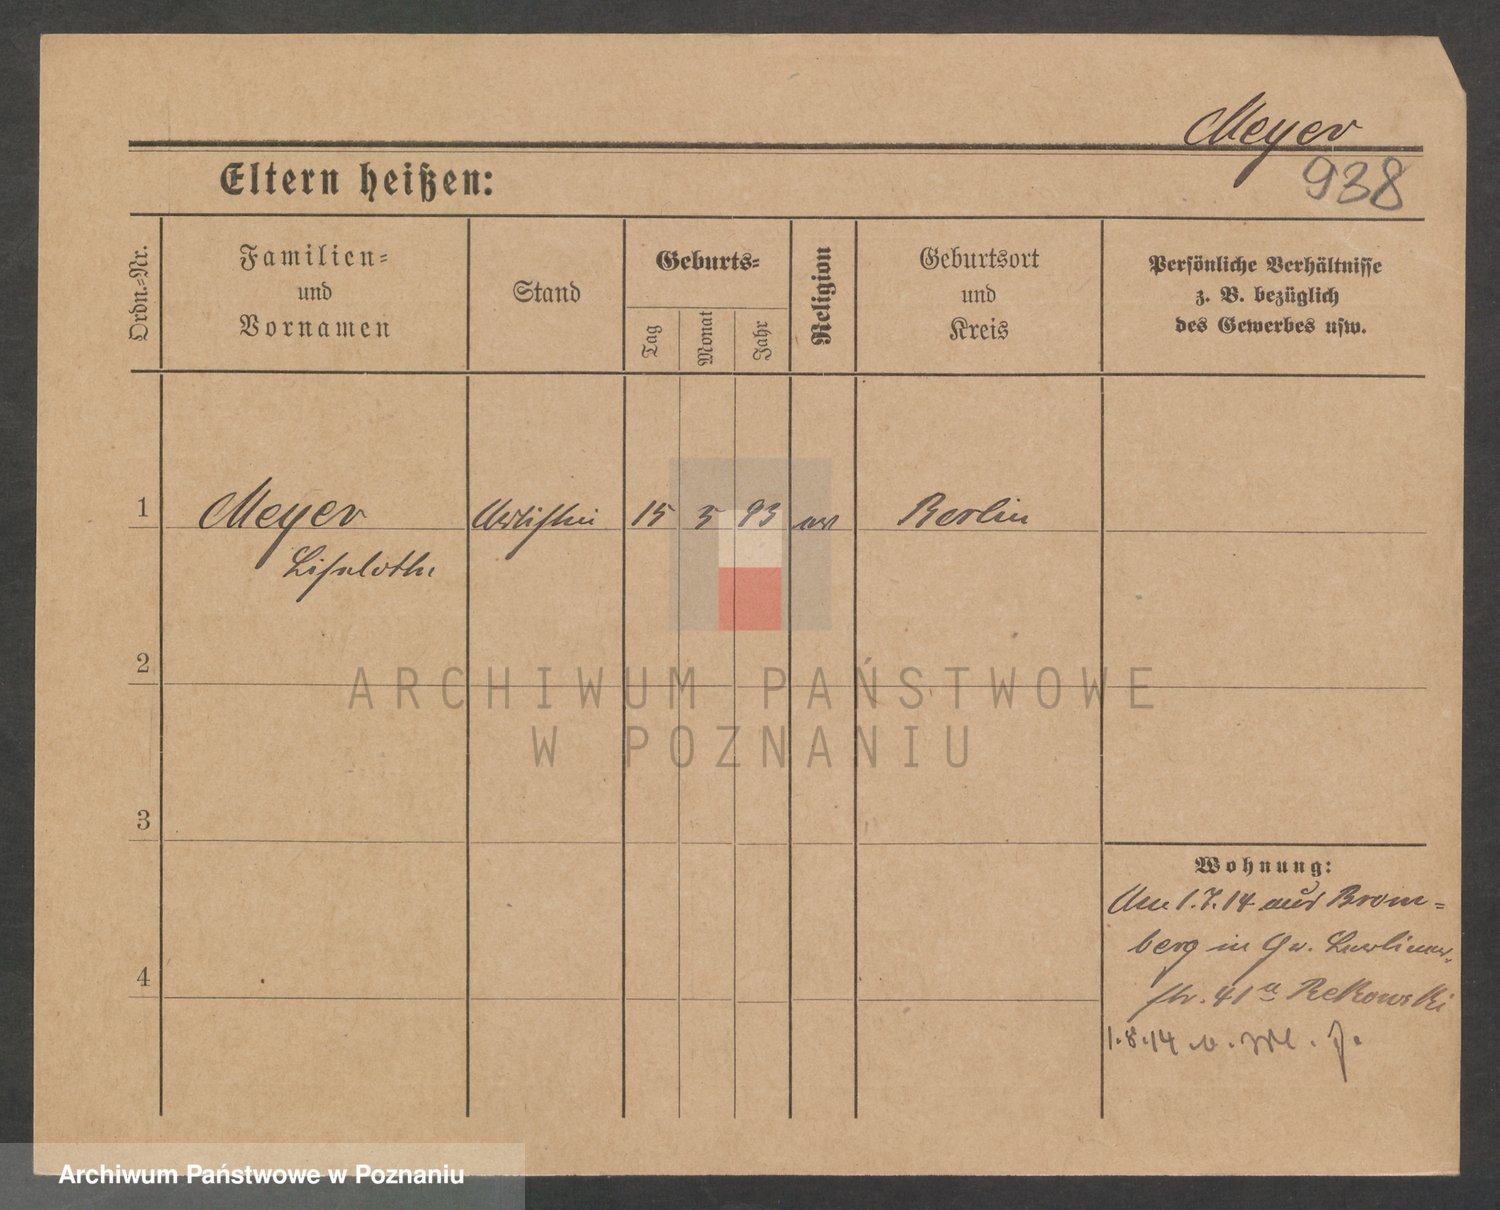 Meyer
938
Eltern heißen:
Ordn.-Nr.
Familien-
und
Vornamen
Stand
Geburts-
Tag
Monat
Jahr
Religion
Geburtsort
und
Kreis
Persönliche Verhältnisse
z. B. bezüglich
des Gewerbes usw.
1
Meyer
Artistin
15
5
93
ev
Berlin
Liselothe
2
ARCHIWUM PAŃSTWOWE
W POZNANIU
3
Wohnung:
Am 1.7.14 aus Brom-
berg in Gn.
4
str. 41a Rekowski
1.8.14
Archiwum Państwowe w Poznaniu